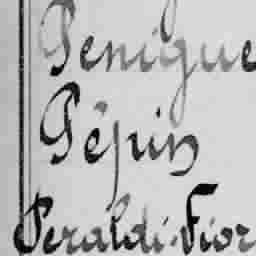 Penigue
Pépin
Peraldi-Fior